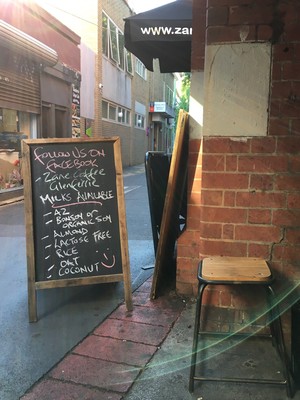 www.zan
FOLLOW US ON
FACEBOOK
Zane Coffee
Glenferrie
MILKS AVAILABLE
- A2
- BONSOY OR
ORGANIC SOY
- ALMOND
- LACTOSE FREE
- RICE
- OAT
- COCONUT